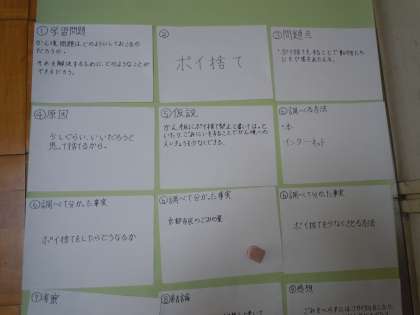 ①学習問題
かん境問題はどのようにしておこるの
だろうか。
それを解決するために、どのようなことが
できるだろう。
②
ポイ捨て
③問題点
ポイ捨てをすることで動物たち
にえいきょうをあたえる。
④原因
少しぐらい、いいだろうと
思って捨てるから。
⑤仮説
かん板にポイ捨て禁止と書いてはって
⑥調べる方法
・本
・インターネット
⑥調べて分かった事実
ポイ捨てをしたらどうなるか
⑥調べて分かった事実
京都市民のごみの量
⑥調べて分かった事実
ポイ捨てを少なくさせる方法
⑦考察
⑧結論
⑨感想